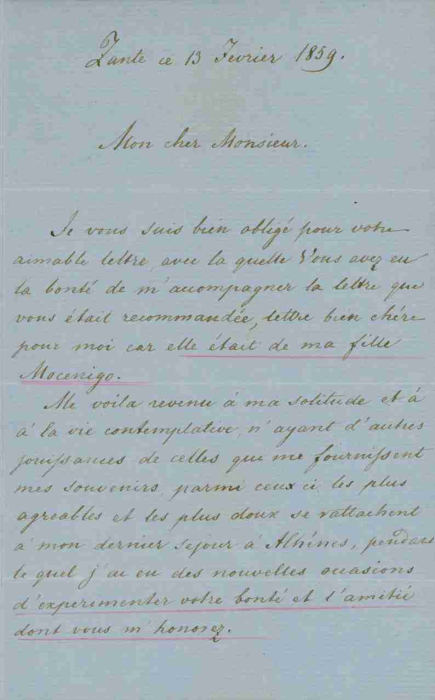 Zante ce 13 Fevrier 1859.
Mon cher Monsieur.
Je vous suis bien obligé pour votre
aimable lettre, avec la quelle Vous avez eu
la bonté de m'accompagner la lettre que
vous était recommandée, lettre bien chére
pour moi car elle était de ma fille
Mocenigo.
Me voila revenu à ma solitude et à
à la vie contemplative, n'ayant d'autres
jouissances de celles que me fournissent
mes souvenirs, parmi ceux ci les plus
agreables et les plus doux se rattachent
à mon dernier sejour à Athènes, pendant
le quel j'ai eu des nouvelles occasions
d'experimenter votre bonté et l'amitié
dont vous m'honorez.